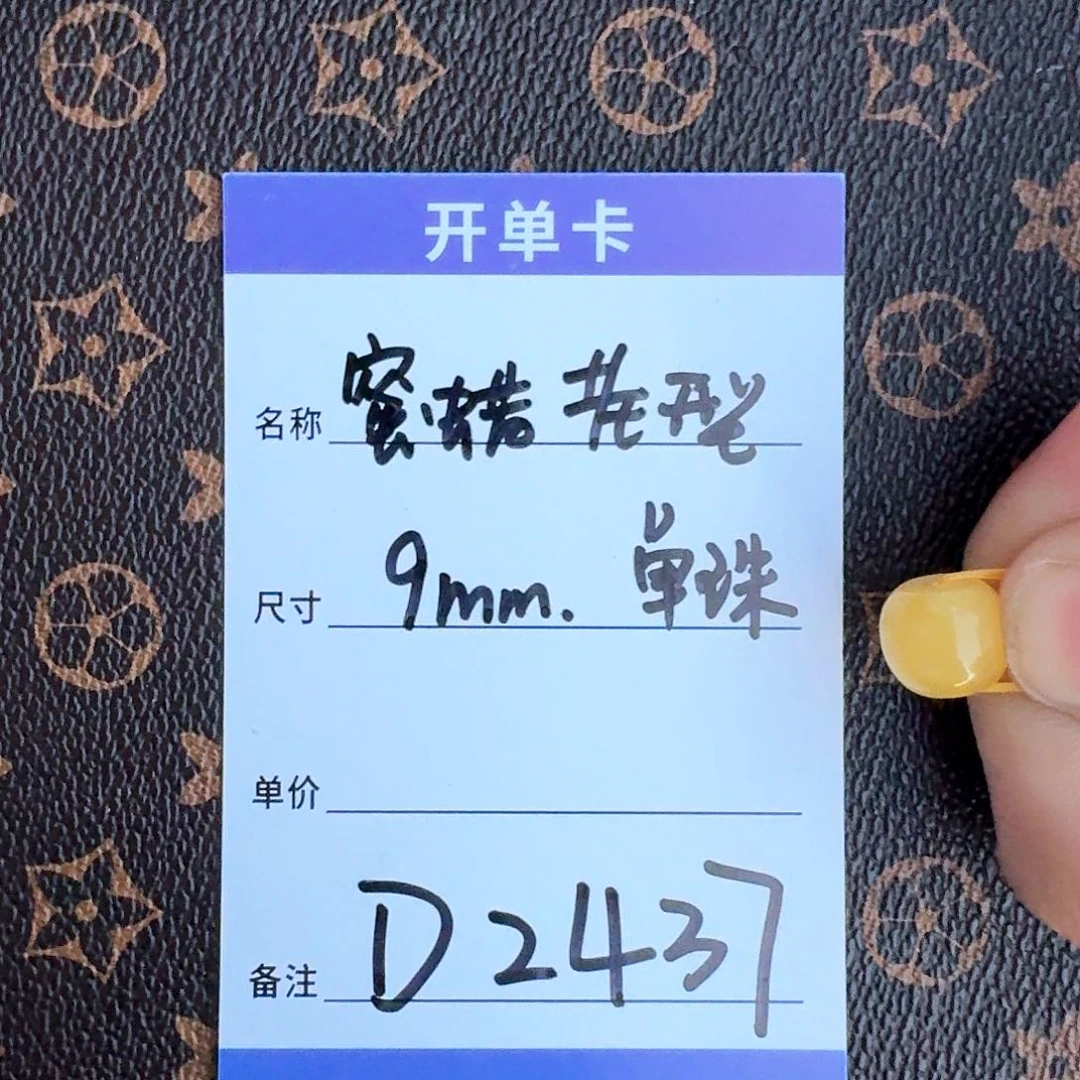 开单卡
名称 蜜蜡老型
尺寸 9mm. 单珠
单价
备注 D2437